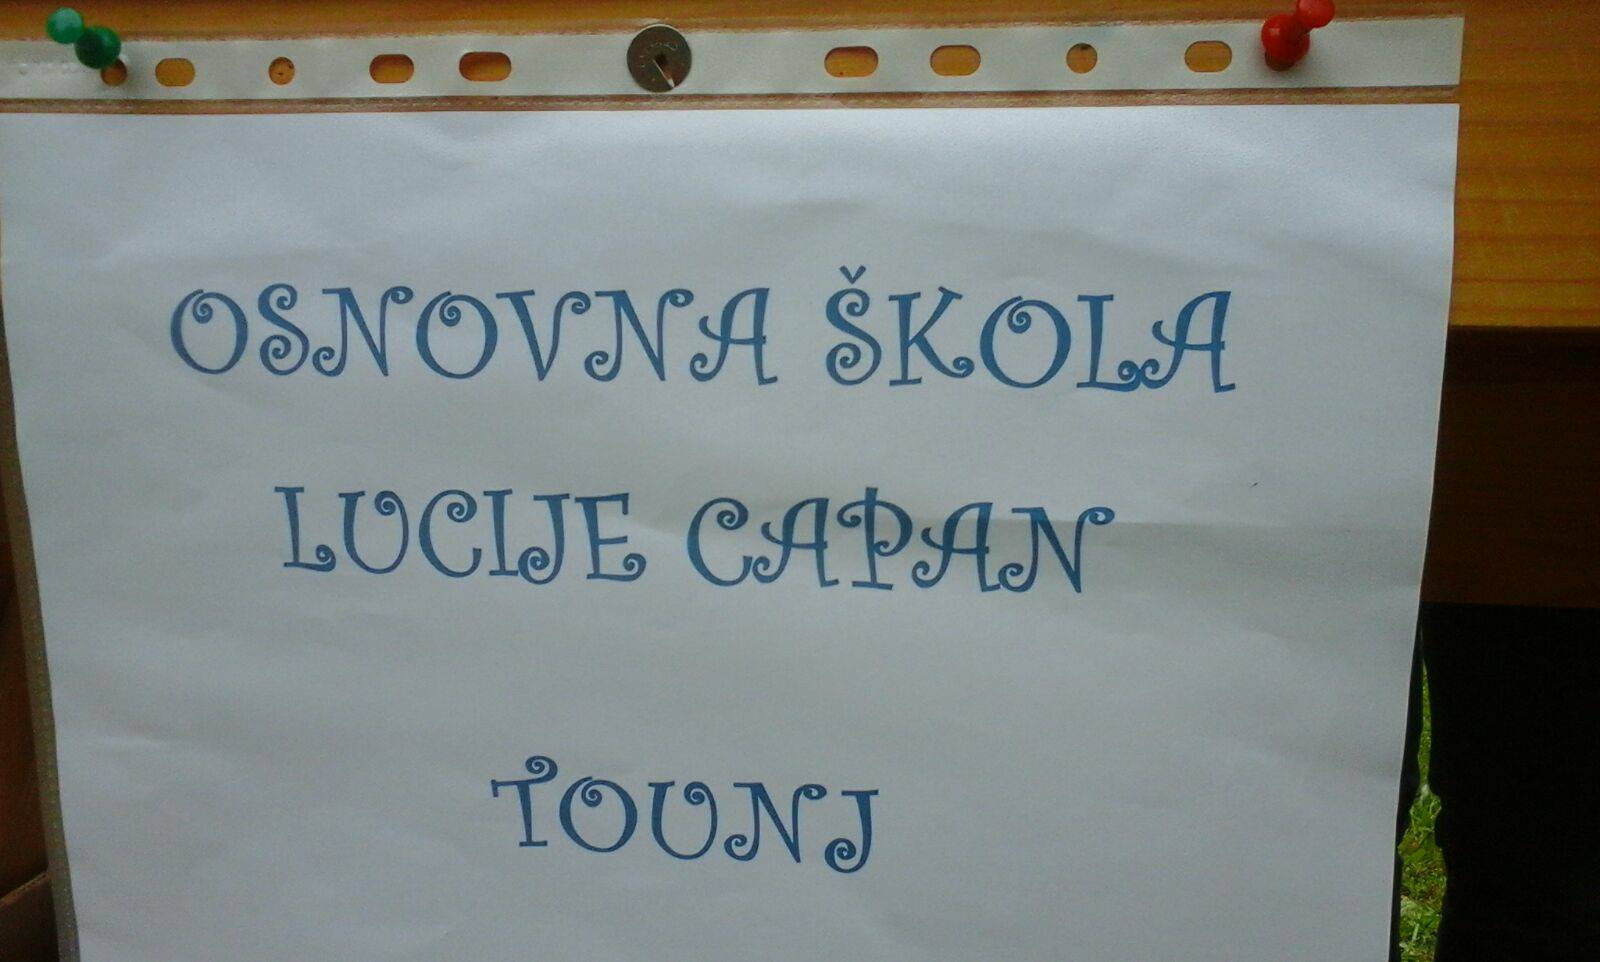 OSNOVNA ŠKOLA
LUCIJE CAPAN
TOUNJ